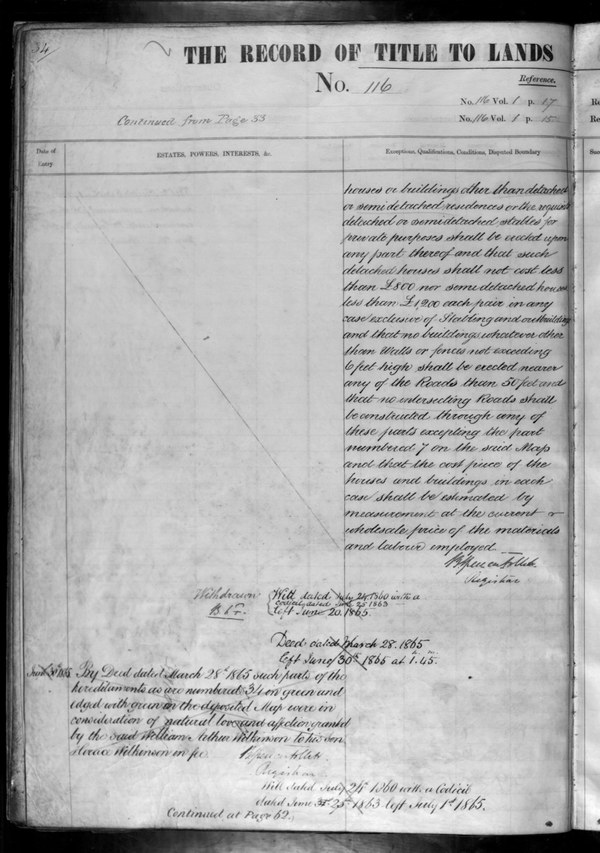 34
THE RECORD OF TITLE TO LANDS
No. 116
Reference.
No. 116 Vol. 1 p. 17
No. 116 Vol. 1 p. 15
Continued from Page 33
Date of
Entry
ESTATES, POWERS, INTERESTS, &c.
Exceptions, Qualifications, Conditions, Disputed Boundary
houses or buildings other than detached
or semidetached residences or the requisite
detached or semidetached stables for
private purposes shall be erected upon
any part thereof and that such
detached houses shall not cost less
than £800 nor semidetached houses
less than £1,200 each pair in any
case exclusive of Stabling and outbuildings
and that no buildings whatever other
than Walls or fences not exceeding
6 feet high shall be erected nearer
any of the Roads than 50 feet and
that no intersecting Roads shall
be constructed through any of
these parts excepting the part
numbered 7 on the said Map
and that the cost price of the
houses and buildings in each
case shall be estimated by
measurement at the current
wholesale price of the materials
and labour employed
Registrar
Withdrawn
Will dated July 24 1860 with a
Codicil dated June 25 1863
left June 20. 1865.
Deed dated March 28. 1865
left June 30th 1865 at 1.45.
By Deed dated March 28th 1865 such parts of the
hereditaments as are numbered 34 on green and
edged with green in the deposited Map were in
consideration of natural love and affection granted
by the said William Arthur Wilkinson to his son
Horace Wilkinson in fee
Registrar
Will dated July 24th 1860 with a Codicil
dated June 25th 1863 left July 1st 1865.
Continued at Page 62.